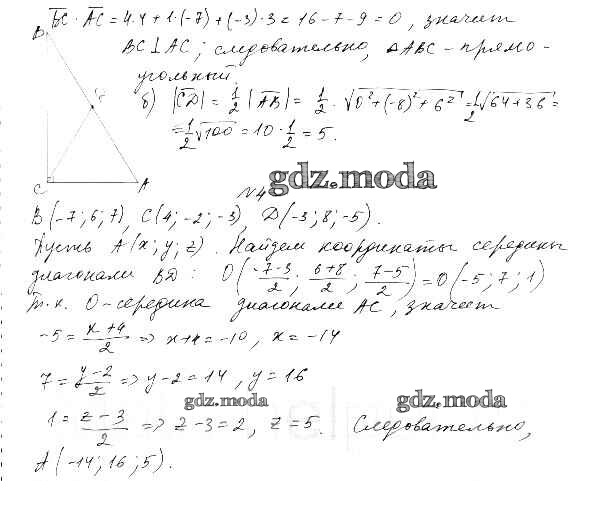 BC · AC = 4·4 + 1·(-7) + (-3)·3 = 16 - 7 - 9 = 0, значит
BC ⊥ AC; следовательно, ΔABC - прямо-
угольный.
B
C
A
б) |CD| = 1/2 |AB| = 1/2 · √(0² + (-8)² + 6²) = 1/2 √(64 + 36) =
= 1/2 √100 = 10 · 1/2 = 5.
gdz.moda
N4
B(-7; 6; 7), C(4; -2; -3), D(-3; 8; -5).
Пусть A(x; y; z). Найдем координаты середины
диагонали BD: O((-7-3)/2; (6+8)/2; (7-5)/2) = O(-5; 7; 1)
т.к. O - середина диагонали AC, значит
-5 = (x+4)/2 => x+4 = -10, x = -14
7 = (y-2)/2 => y-2 = 14, y = 16
gdz.moda
gdz.moda
1 = (z-3)/2 => z-3 = 2, z = 5. Следовательно,
A(-14; 16; 5).